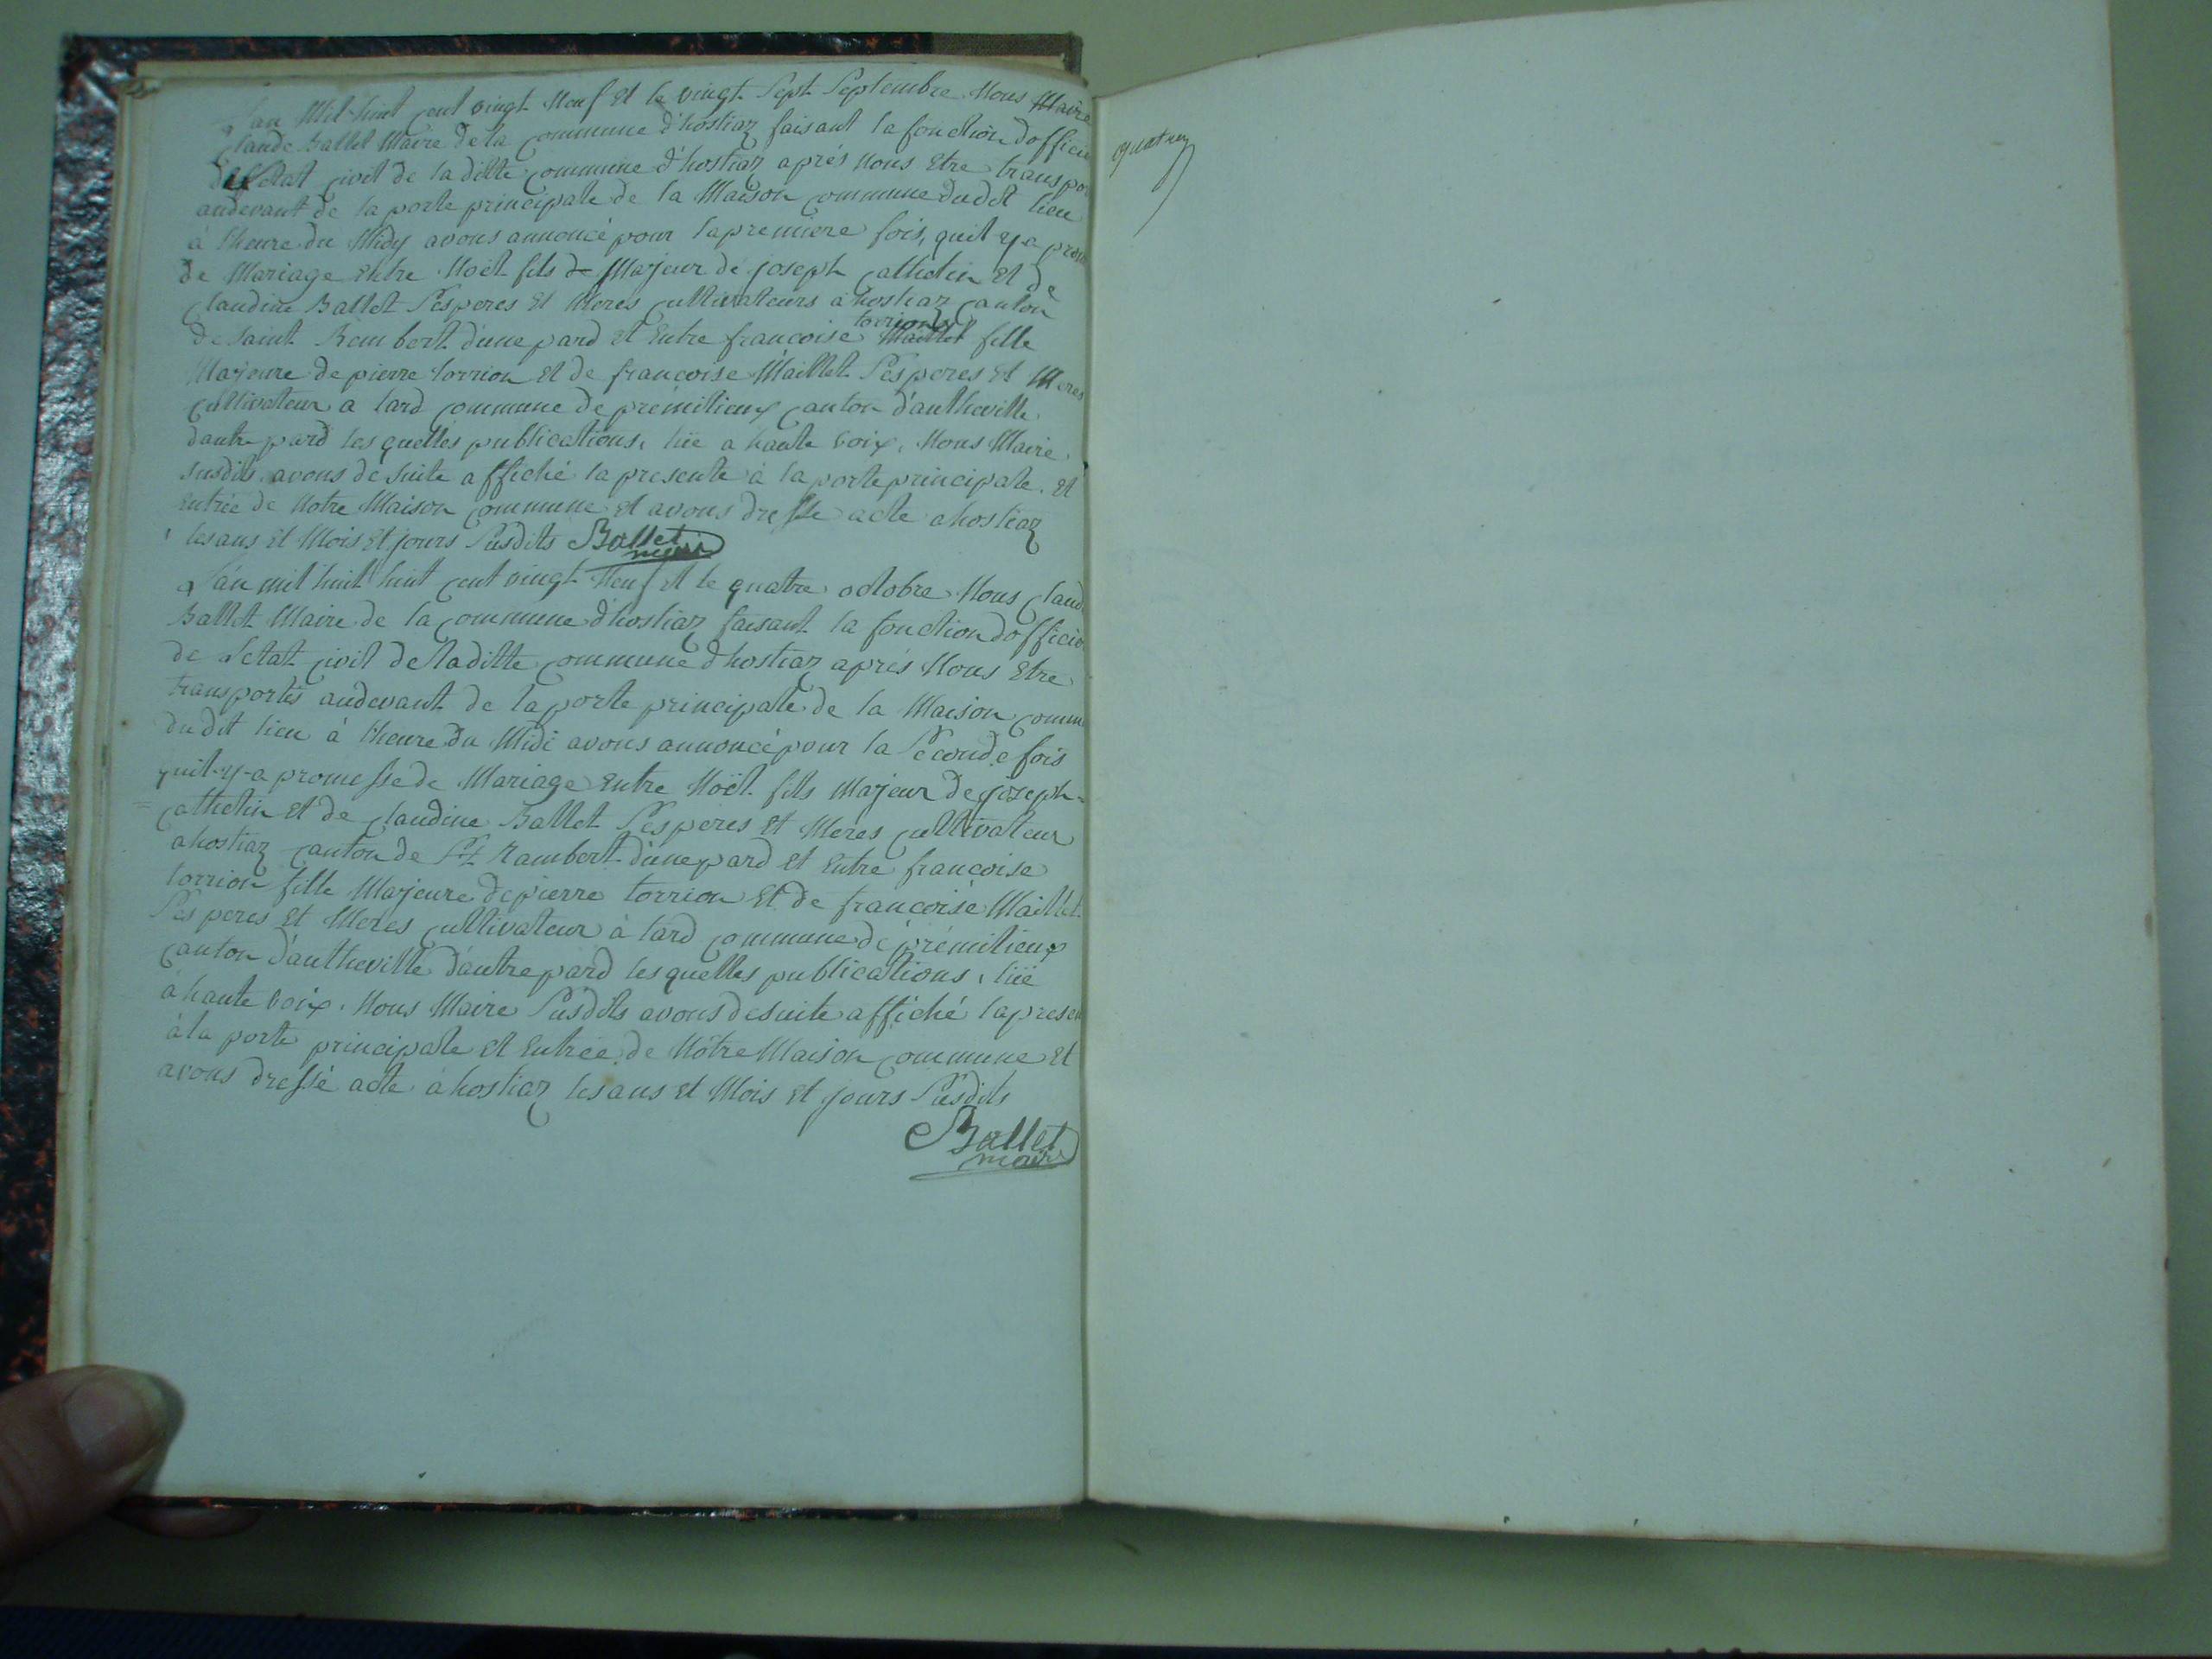 L'an Mil huit cent vingt Neuf et le vingt Sept Septembre Nous Maire
Claude Ballet Maire de la commune d'hostiaz faisant la fonction dofficie
de Letat civil de la ditte commune d'hostiaz aprés Nous Etre transpor
audevant de la porte principale de la Maison commune dudit lieu
à lheure du Midy avons annoncé pour la premiere fois, quil y a prom
de Mariage Entre Noël fils de Majeur de joseph cathelin Et de
Claudine Ballet Ses peres Et Meres cultivateurs à hostiaz canton
De saint Rembert d'une pard Et Entre francoise Maillet torrion fille
Majeure de pierre torrion Et de francoise Maillet Ses peres Et Meres
cultivateur a lard commune de premilieux canton d'autheville
dautre pard les quelles publications, lüe a haute voix, Nous Maire
susdits avons de suite affiché la presente à la porte principale Et
Entrée de Notre Maison commune et avons dressé acte a hostiaz
les ans Et Mois Et jours Susdits Ballet
maire
L'an mil huit huit cent vingt Neuf Et le quatre octobre Nous Claud
Ballet Maire de la commune d'hostiaz faisant la fonction dofficie
de Letat civil de la ditte commune d'hostiaz aprés Nous Etre
transportés audevant de la porte principale de la Maison comm
du dit lieu à lheure du Midi avons annoncé pour la Seconde fois
quil-y-a promesse de Mariage Entre Noël fils Majeur de joseph
cathelin Et de claudine Ballet Ses peres Et Meres cultivateur
a hostiaz canton de St Rambert d'une pard et Entre francoise
torrion fille Majeure de pierre torrion Et de francoise Maillet
Ses peres Et Meres cultivateur à lard commune de prémilieux
canton d'autheville d'autre pard les quelles publications, lüe
à haute voix. Nous Maire Susdits avons de suite affiché la presen
à la porte principale Et Entrée de Nôtre Maison commune Et
avons dressé acte à hostiaz les ans et Mois Et jours Susdits
Ballet
maire